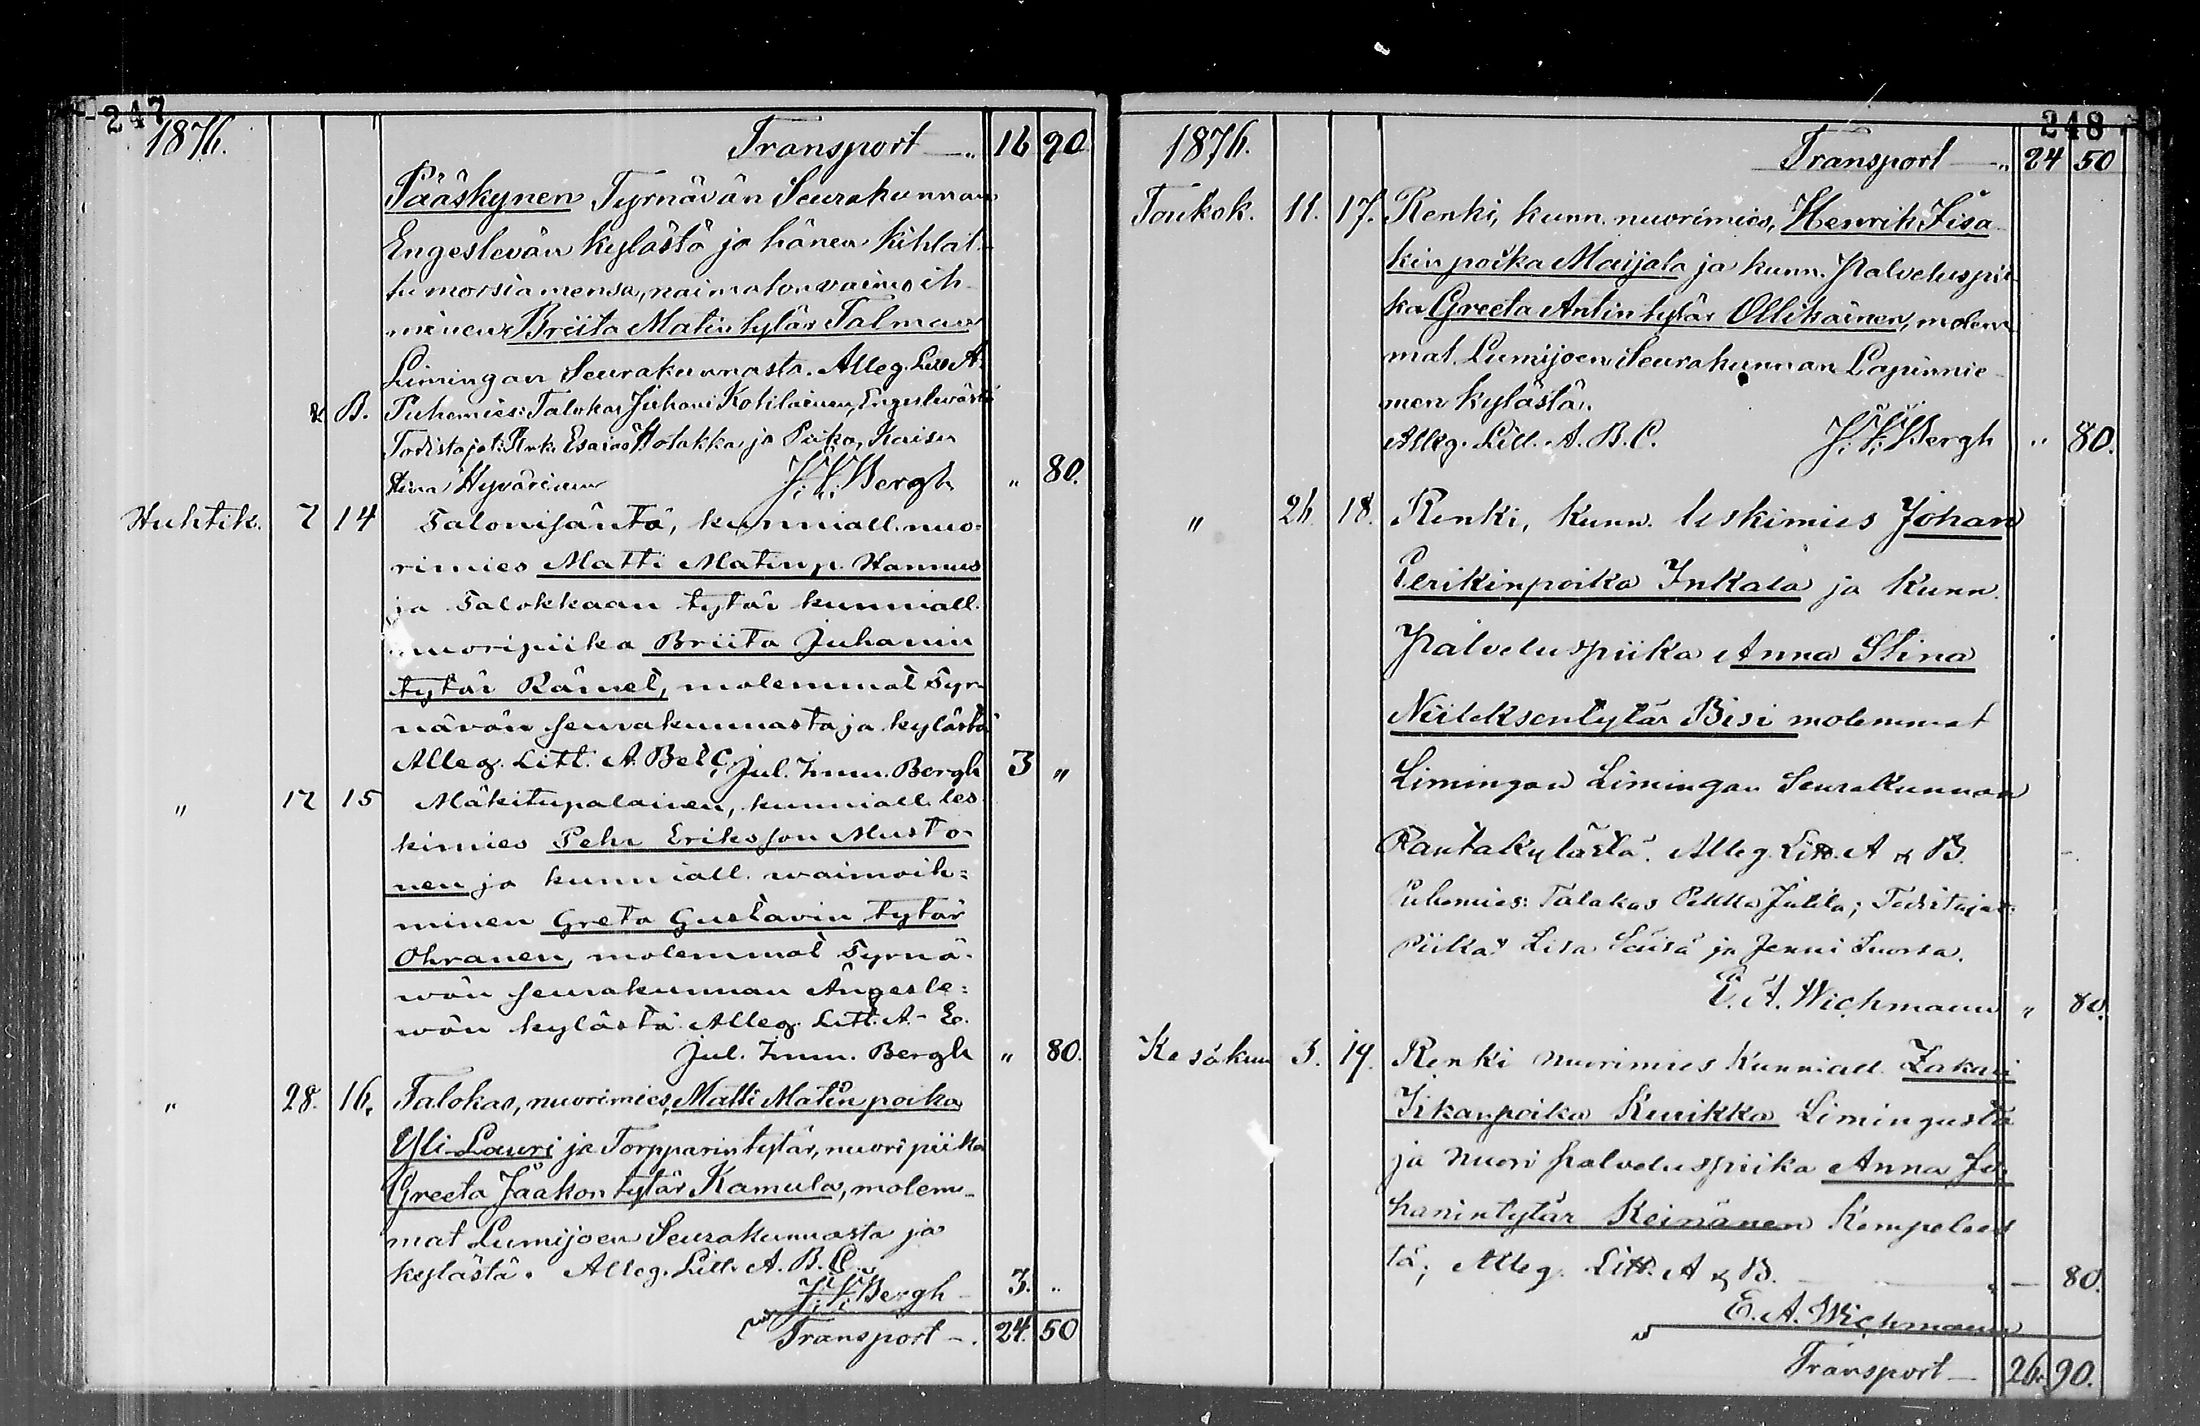 247
1876. Transport —„ 16 90
Pääskynen Tyrnävän Seurakunnan
Engeslevän kylästä ja hänen kihlat-
tu morsiamensa, naimaton vaimoih-
minen Briita Matin tytär Talman
Limingan Seurakunnasta. Alleg. Litt A.
& B. Puhemies: Talokas Juhani Kotilainen, Engeslevästä
Todistajat: Renk. Esaias Holakka ja Piika Kaisa
Stina Hyvärinen J. I. Bergh „ 80.
Huhtik. 7 14 Talonisäntä, kunniall. nuo-
rimies Matti Matinp. Hannus
ja Talokkaan tytär kunniall.
nuoripiika Briita Juhanin
tytär Kärnet, molemmat Tyr-
nävän seurakunnasta ja kylästä
Alleg. Litt. A. B et C. Jul. Imm. Bergh 3 „
„ 12 15 Mäkitupalainen, kunniall. les-
kimies Pehr Eriksson Musto-
nen ja kunniall. waimoih=
minen Greta Gustavin tytär
Ohranen, molemmat Tyrnä-
wän seurakunnan Ängesle=
wän kylästä. Alleg. Litt. A.- E.
Jul. Imm. Bergh „ 80.
„ 28. 16. Talokas, nuorimies, Matti Matin poika
Yli-Lauri ja Torpparin tytär, nuori piika
Greeta Jaakon tytär Kamula, molem-
mat Lumijoen Seurakunnasta ja
kylästä. Alleg. Litt. A. B. C.
J. I. Bergh — 3. „
Transport —. 24. 50
248
1876. Transport —„ 24 50
Toukok. 11. 17. Renki, kunn. nuorimies, Henrik Iisa-
kin poika Maijala ja kunn. Palveluspii-
ka Greeta Antin tytär Ollikainen, molem-
mat Lumijoen Seurakunnan Lapinnie-
men kylästä.
Alleg. Litt. A. B. C. J. I. Bergh „ 80.
„ 26. 18. Renki, Kunn. leskimies Johan
Perikinpoika Inkala ja Kunn.
Palveluspiika Anna Stina
Niileksentytär Bisi molemmat
Limingan Limingan Seurakunnan
Rantakylästä. Alleg. Litt. A & B.
Puhemies: Talokas Pekka Jutila; Todistajat:
Piikat Lisa ja Jenni Suorsa.
E. A. Wichmann „ 80.
Kesäkuu 3. 19. Renki nuorimies Kunniall. Zakari
Iikanpoika Kurikka Limingasta
ja nuori palveluspiika Anna Ju-
hanintytär Keinänen Kempelees-
tä; Alleg. Litt. A & B. — „ — 80.
E. A. Wichmann
Transport — 26. 90.